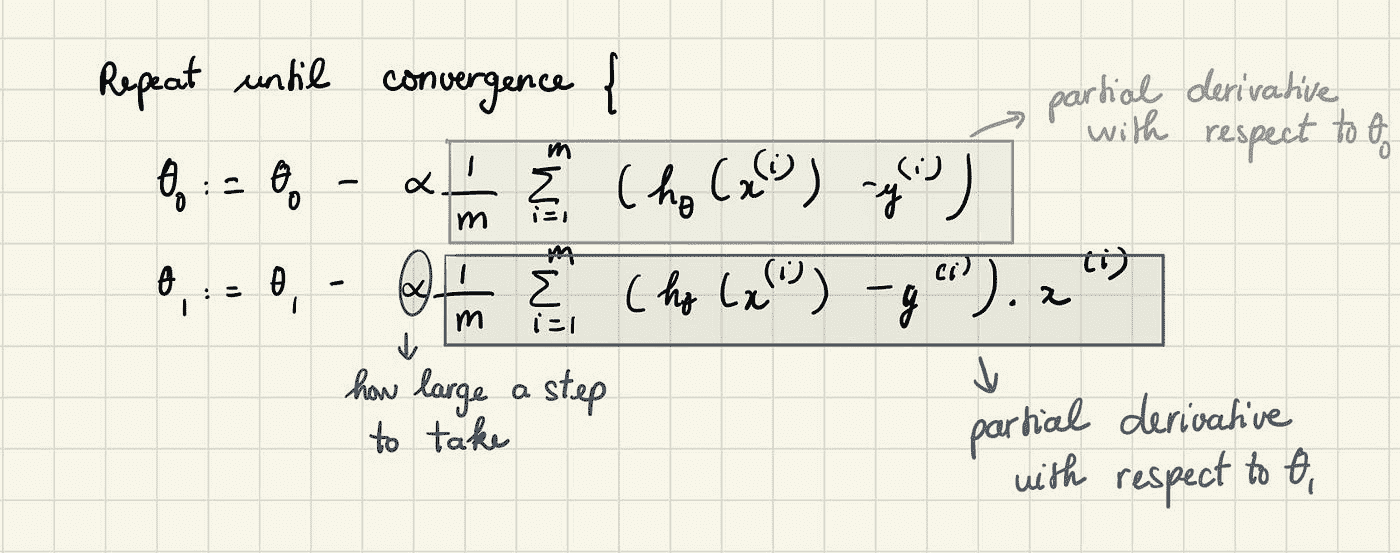 Repeat until convergence {
partial derivative
with respect to θ₀
θ₀ := θ₀ - α 1/m Σᵢ₌₁ᵐ (h_θ (x⁽ⁱ⁾) - y⁽ⁱ⁾)
θ₁ := θ₁ - α 1/m Σᵢ₌₁ᵐ (h_θ (x⁽ⁱ⁾) - y⁽ⁱ⁾) . x⁽ⁱ⁾
how large a step
to take
partial derivative
with respect to θ₁